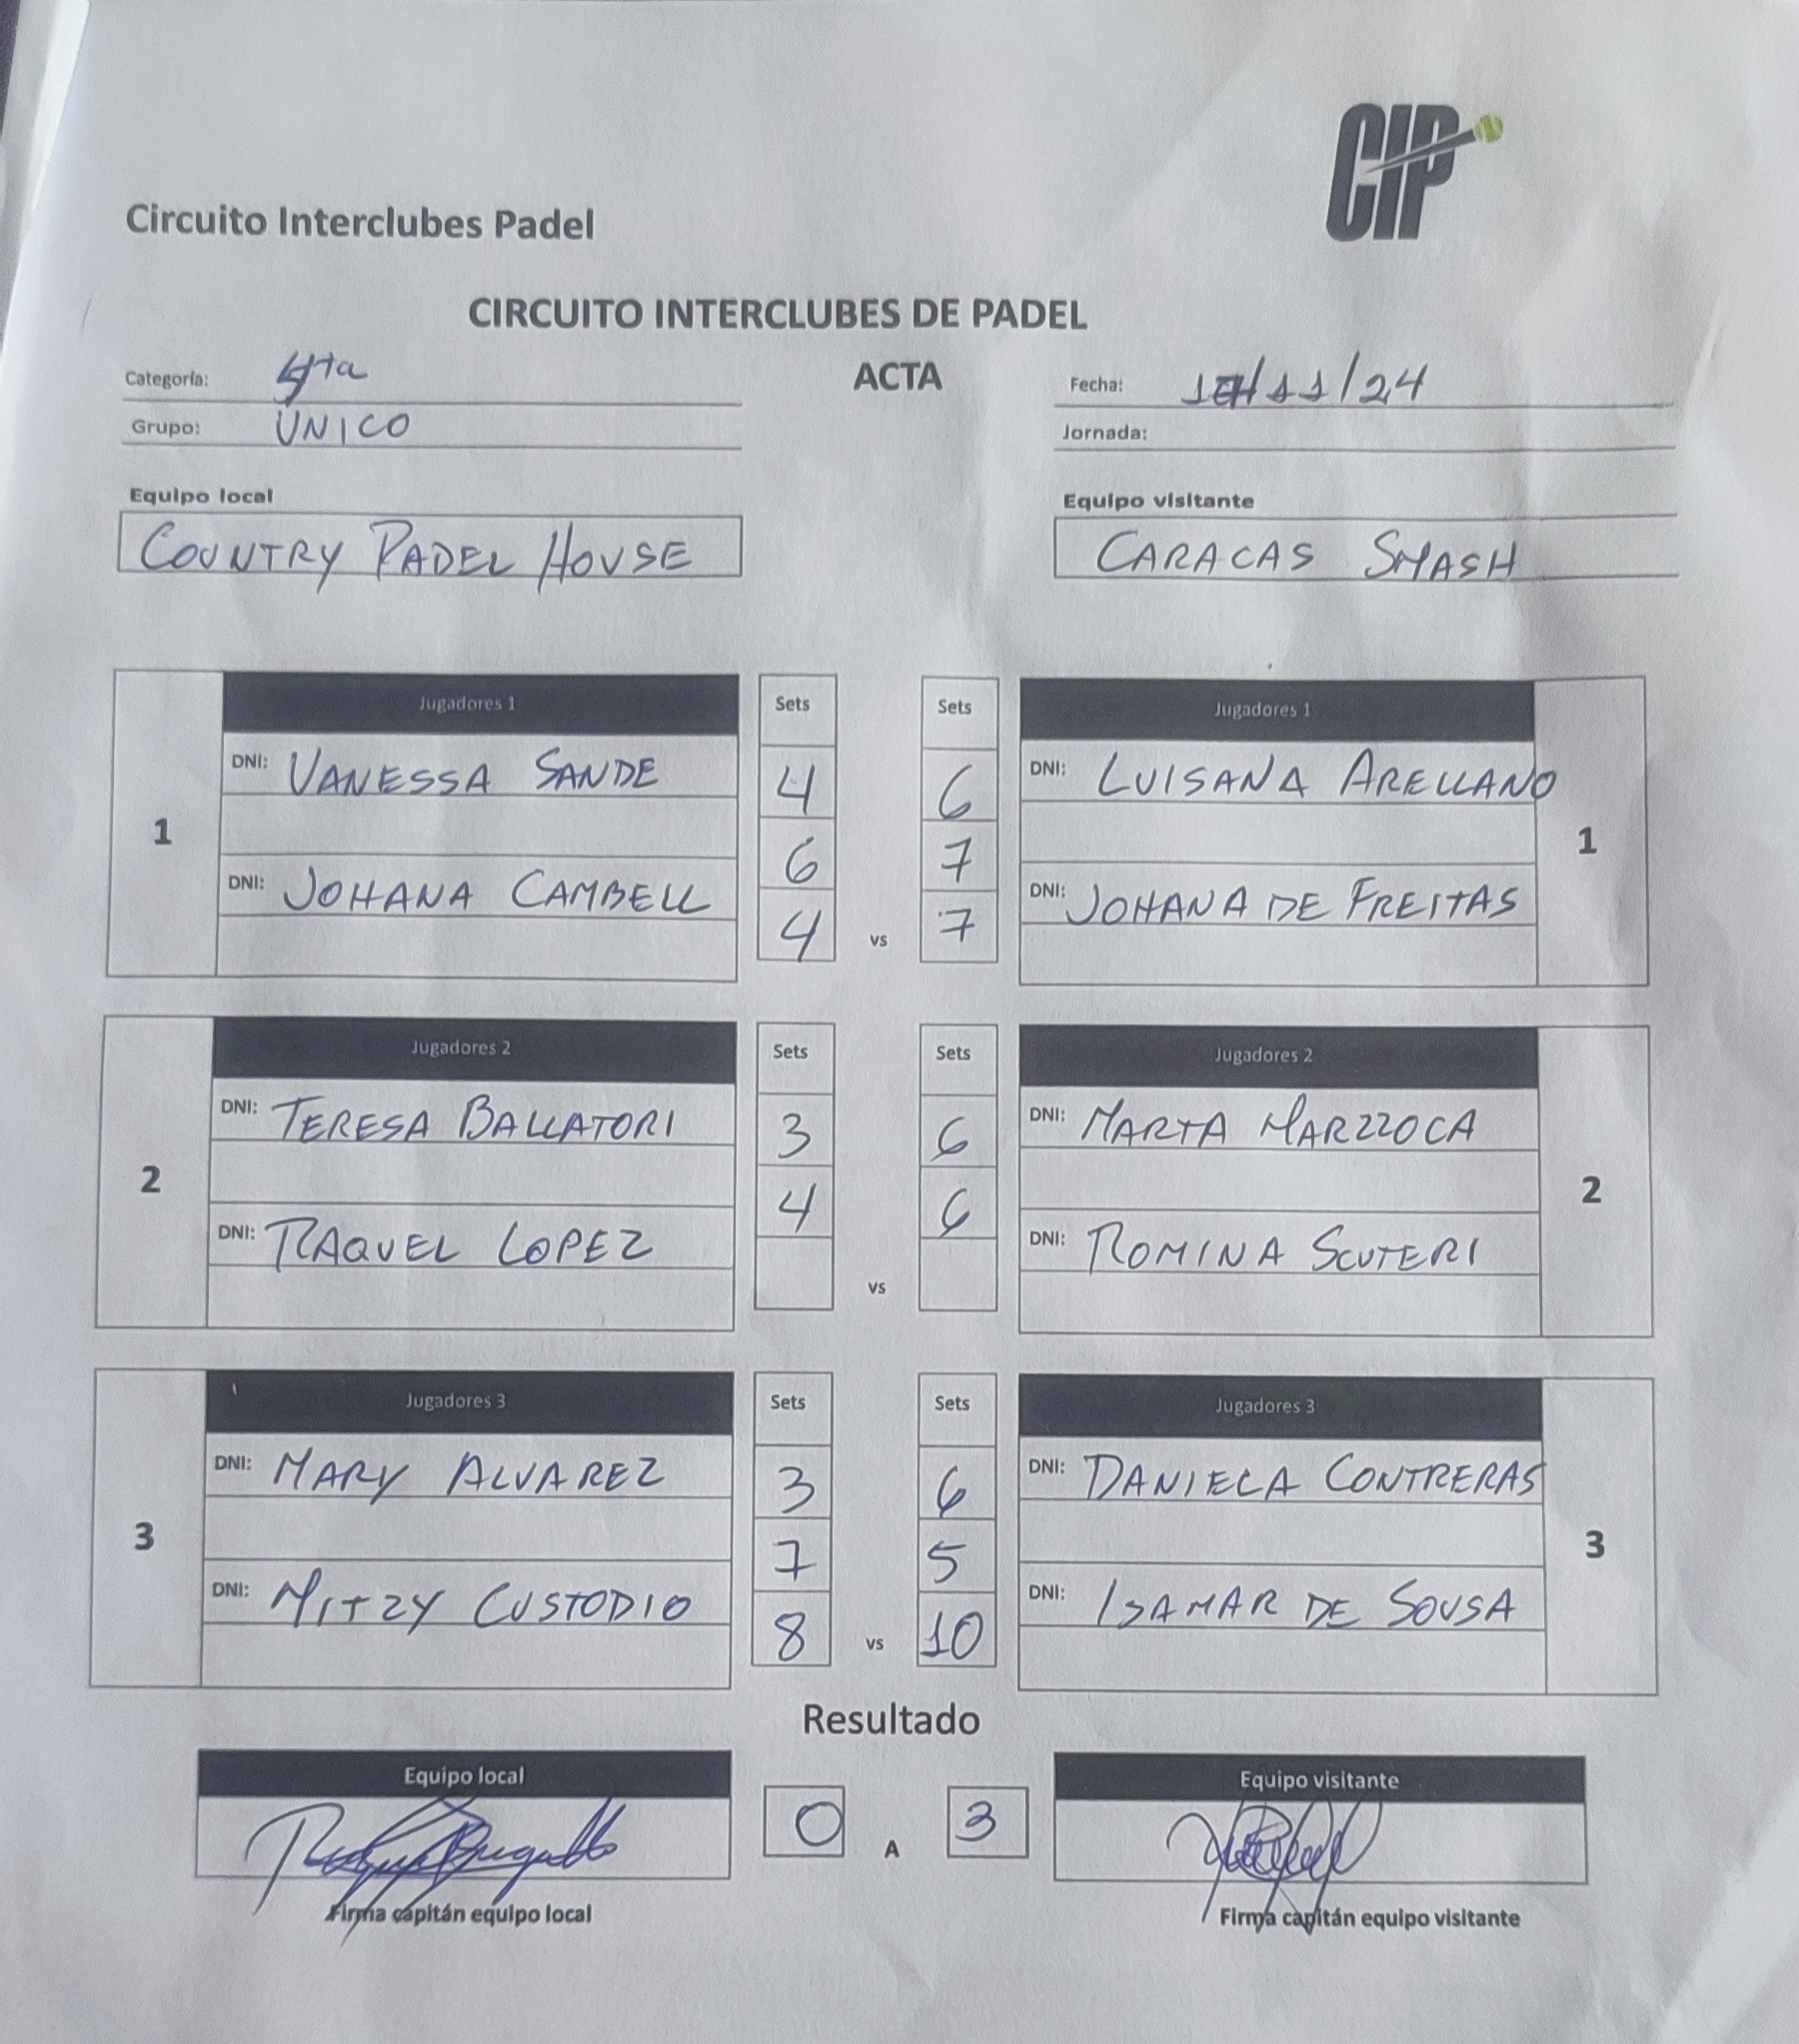 CIP
Circuito Interclubes Padel
CIRCUITO INTERCLUBES DE PADEL
ACTA
Categoría:
Grupo: UNICO
Fecha: /11/24
Jornada:
Equipo local
COUNTRY PADEL HOUSE
Equipo visitante
CARACAS SMASH
1
Jugadores 1
DNI: VANESSA SANDE
DNI: JOHANA CAMBELL
Sets
4
6
4
vs
Sets
6
7
7
Jugadores 1
DNI: LUISANA ARELLANO
DNI: JOHANA DE FREITAS
1
2
Jugadores 2
DNI: TERESA BALLATORI
DNI: RAQUEL LOPEZ
Sets
3
4
vs
Sets
6
6
Jugadores 2
DNI: MARTA MARZZOCA
DNI: ROMINA SCUTERI
2
3
Jugadores 3
DNI: MARY ALVAREZ
DNI: MITZY CUSTODIO
Sets
3
7
8
vs
Sets
6
5
10
Jugadores 3
DNI: DANIELA CONTRERAS
DNI: ISAMAR DE SOUSA
3
Resultado
Equipo local
Firma capitán equipo local
0 A 3
Equipo visitante
Firma capitán equipo visitante